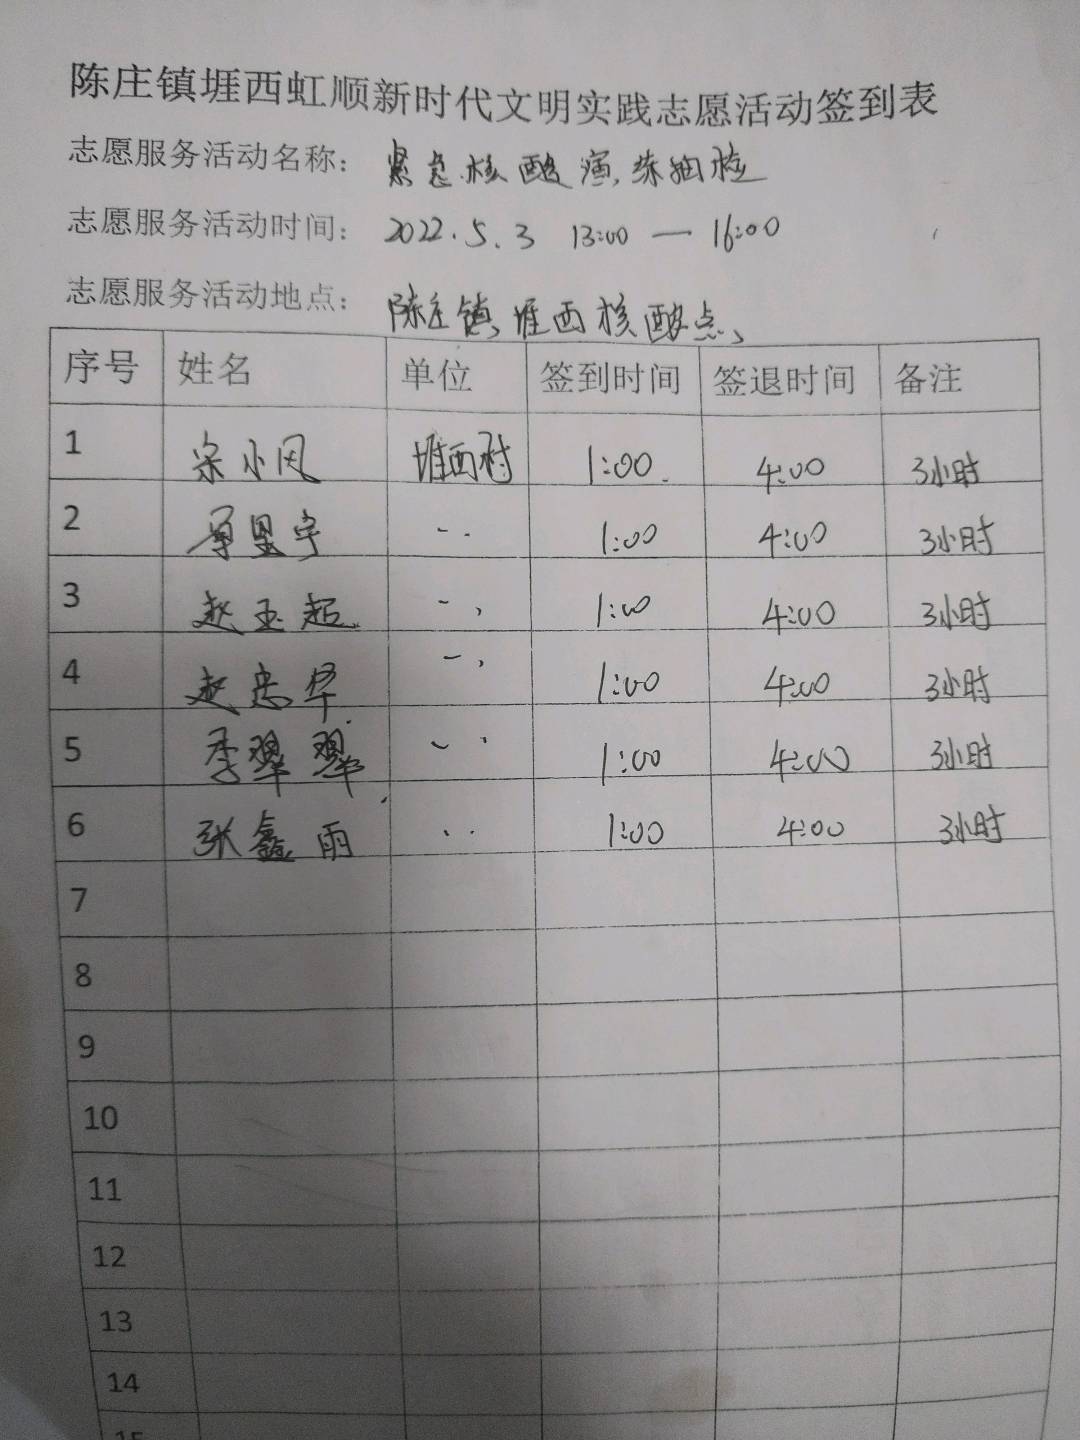 陈庄镇堐西虹顺新时代文明实践志愿活动签到表
志愿服务活动名称： 紧急核酸演练抽检
志愿服务活动时间： 2022.5.3 13:00 — 16:00
志愿服务活动地点： 陈庄镇堐西核酸点
序号 姓名 单位 签到时间 签退时间 备注
1 宋小风 堐西村 1:00 4:00 3小时
2 1:00 4:00 3小时
3 赵玉超 1:00 4:00 3小时
4 赵忠华 1:00 4:00 3小时
5 李翠翠 1:00 4:00 3小时
6 张鑫雨 1:00 4:00 3小时
7
8
9
10
11
12
13
14
15